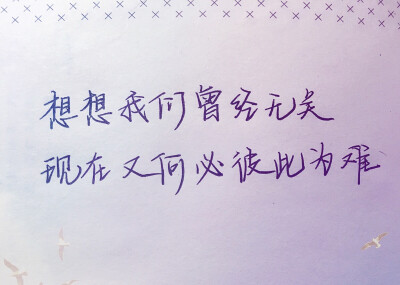 想想我们曾经无关
现在又何必彼此为难